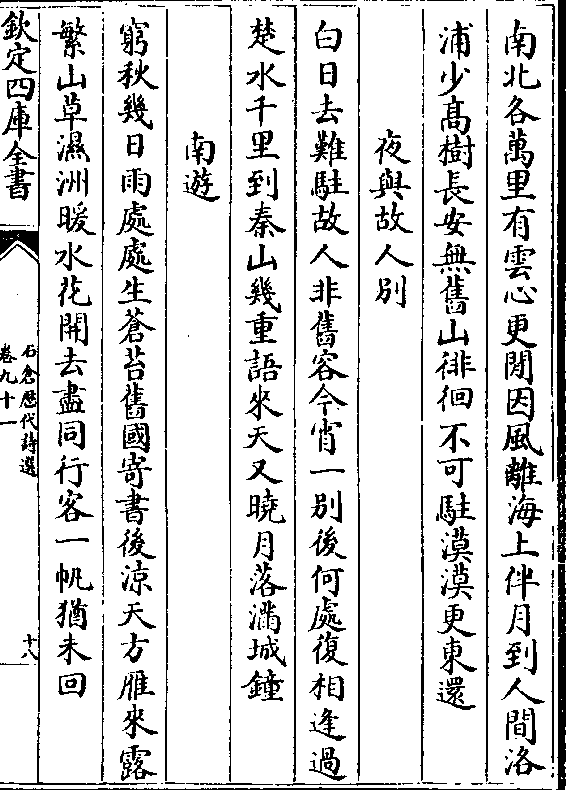 南北各萬里有雲心更閒因風離海上伴月到人間洛
浦少髙樹長安無舊山徘徊不可駐漠漠更東還
夜與故人别
白日去難駐故人非舊客今宵一别後何處復相逢過
楚水千里到秦山幾重語來天又曉月落滿城鐘
南遊
窮秋幾日雨處處生蒼苔舊國寄書後涼天方雁來露
繁山草濕洲暖水花開去盡同行客一帆猶未回
欽定四庫全書
石倉歴代詩選
卷九十一
十八